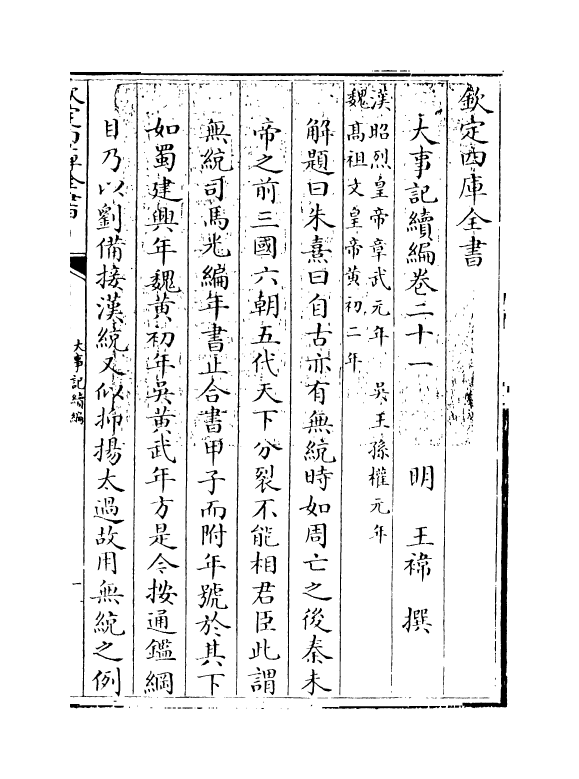 欽定四庫全書
大事記續編卷二十一 明 王禕 撰
漢昭烈皇帝章武元年 吳王孫權元年
魏高祖文皇帝黃初二年
解題曰朱熹曰自古亦有無統時如周亡之後秦未
帝之前三國六朝五代天下分裂不能相君臣此謂
無統司馬光編年書止合書甲子而附年號於其下
如蜀建興年魏黃初年吳黃武年方是今按通鑑綱
目乃以劉備接漢統又似抑揚太過故用無統之例
大事記續編
一